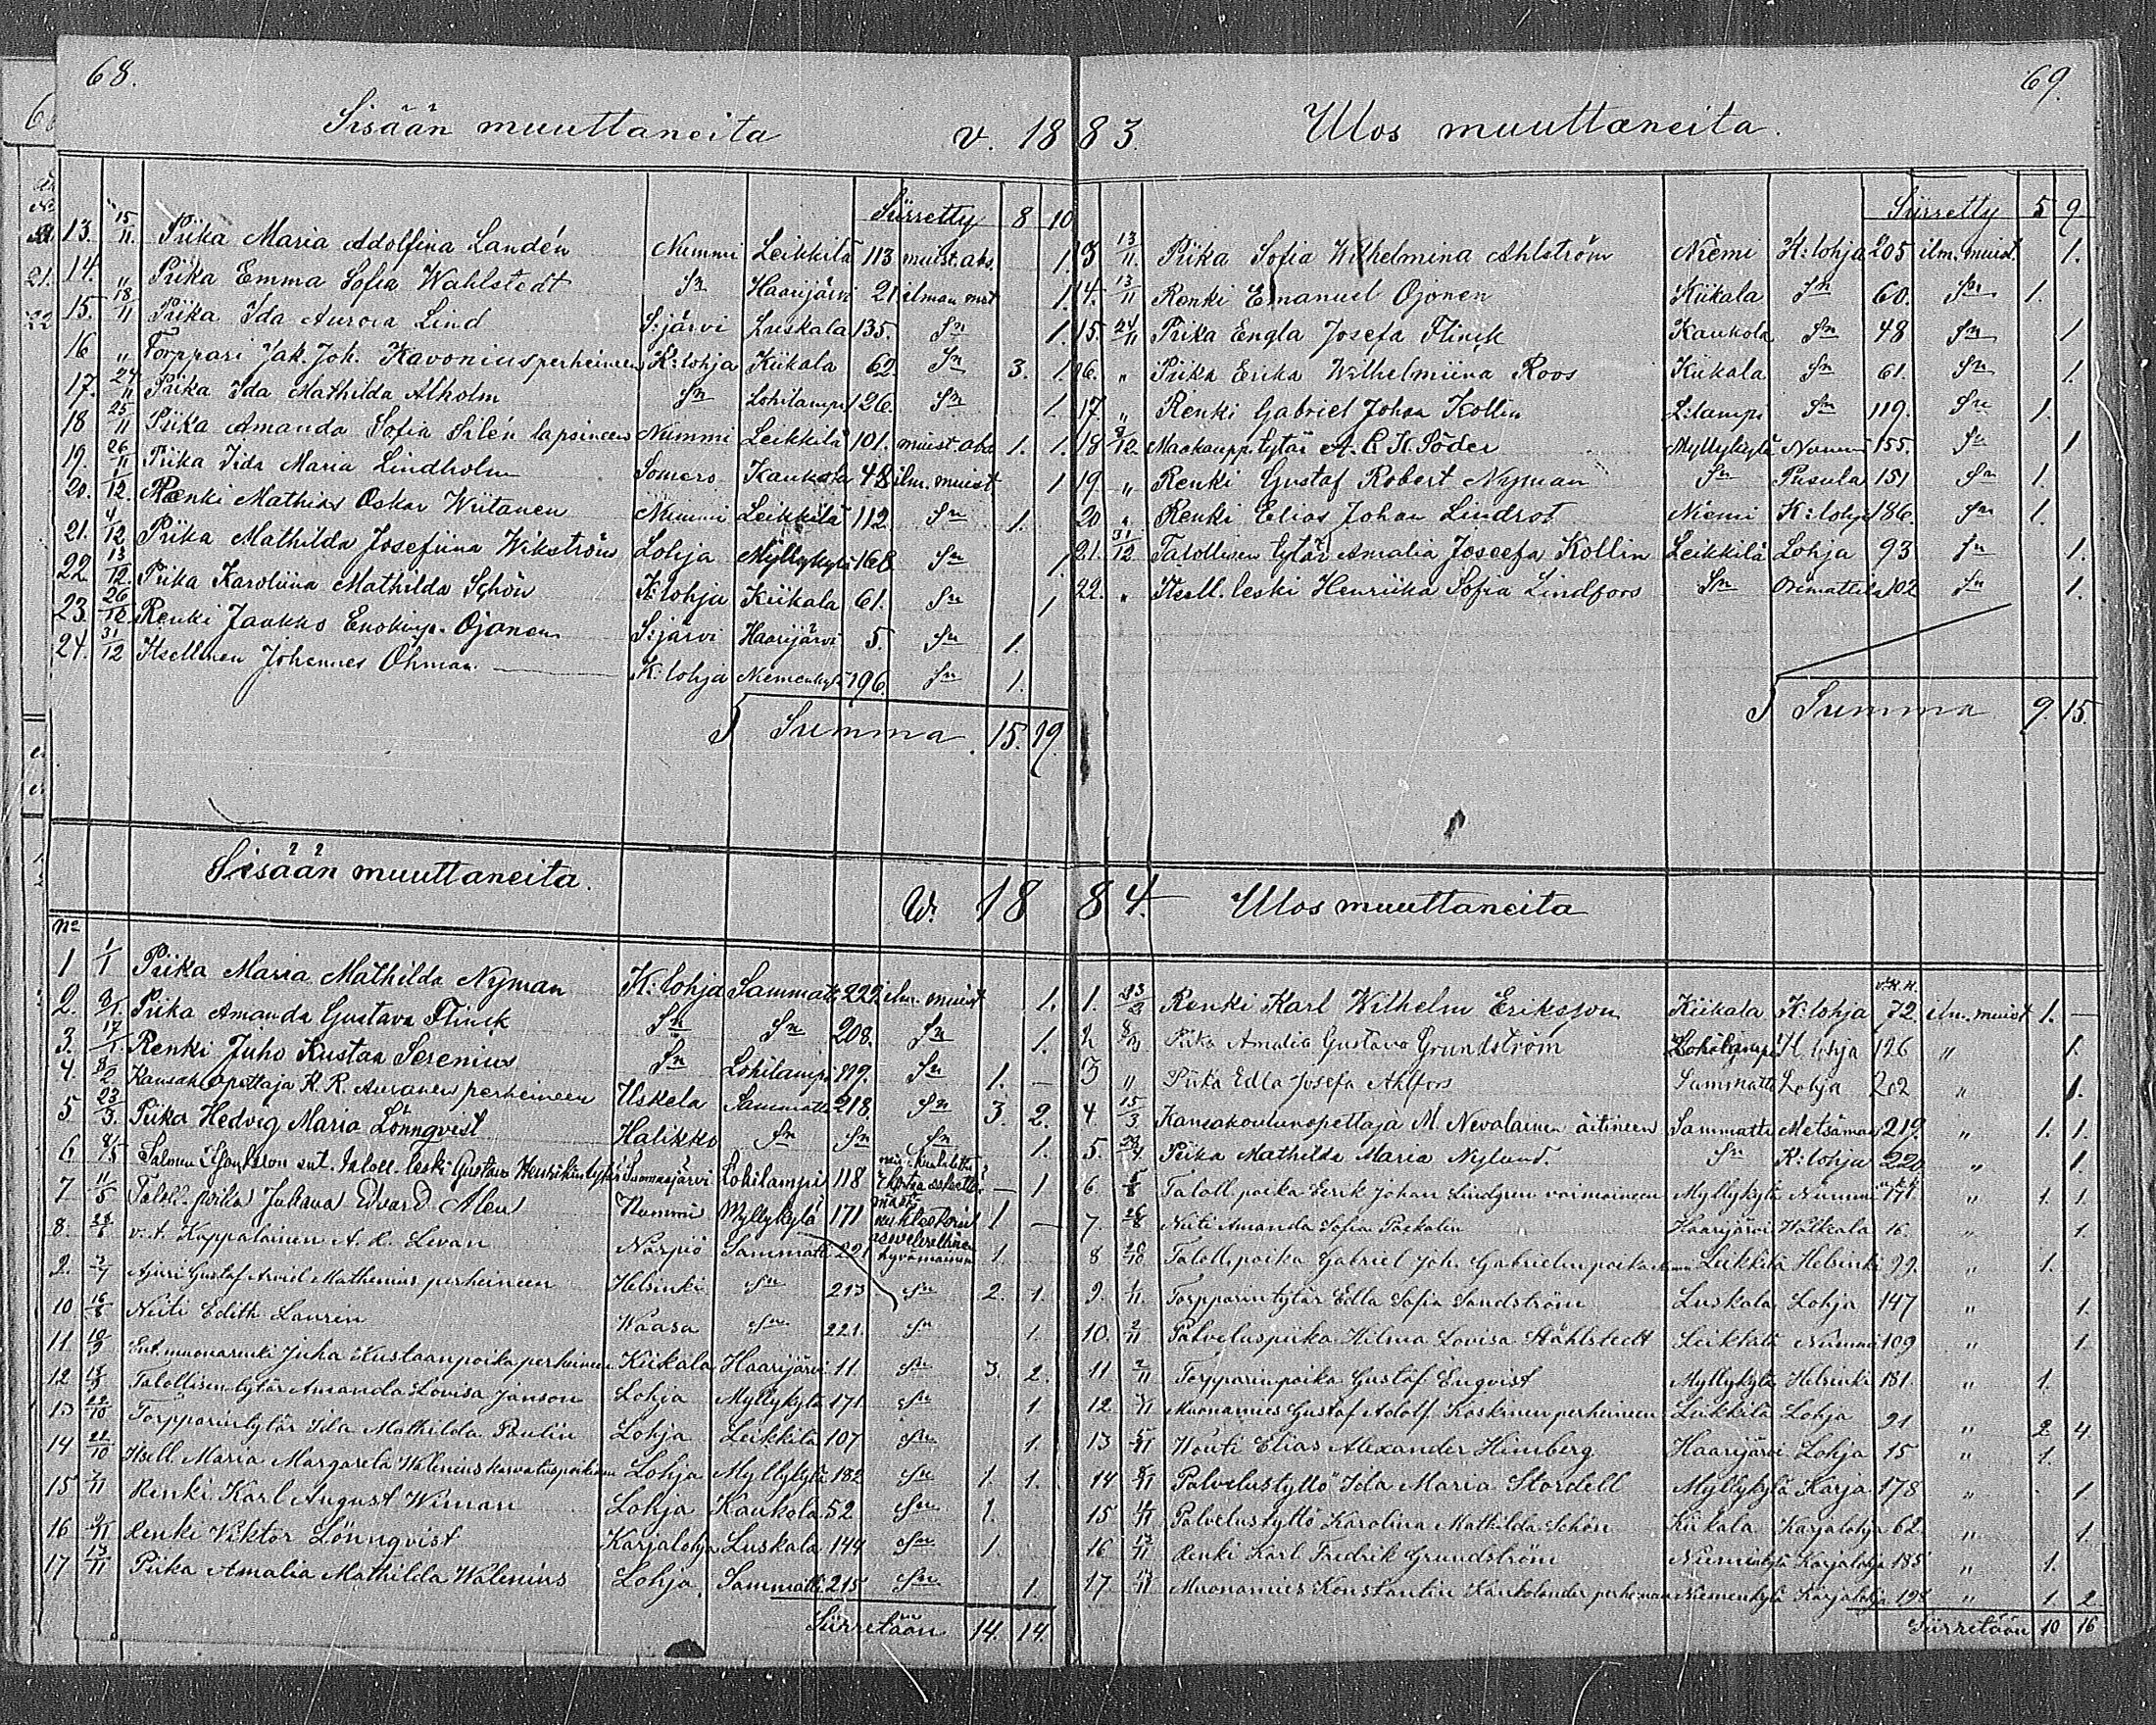 68.
Sisään muuttaneita v. 18
Siirretty 8 10
13. 15/11. Piika Maria Adolfina Landén Nummi Leikkilä 113 muist. abs. 1.
14. " Piika Emma Sofia Wahlstedt Sn Haarijärvi 21. ilman mst 1.
15. 18/11 Piika Ida Aurora Lind S:järvi Luskala 135. Sn 1.
16 " Torppari Jak. Joh. Kavonius perheineen K:lohja Kiikala 62. Sn 3. 1.
17. 24/11 Piika Ida Mathilda Alholm Sn Lohilampi 126. Sn 1.
18 25/11 Piika Amanda Sofia Silén lapsineen Nummi Leikkilä 101. muist. abs. 1. 1.
19. 26/11 Piika Iida Maria Lindholm Somero Kaukola 48 ilm. muist 1
20. 1/12. Renki Mathias Oskar Wiitanen Nummi Leikkilä 112 Sn 1.
21. 4/12 Piika Mathilda Josefiina Wikström Lohja Myllykylä 168 Sn 1.
22. 13/12. Piika Karoliina Mathilda Schön K:lohja Kiikala 61. Sn 1
23. 26/12. Renki Jaakko Enokinp. Ojanen S:järvi Haarijärvi 5. Sn 1.
24. 31/12 Itsellinen Johannes Öhman K:lohja Niemenkylä 196. Sn 1.
Summa 15. 19.
Sisään muuttaneita. W. 18
No
1 1/1 Piika Maria Mathilda Nyman K:lohja Sammatti 222 ilm. muist 1.
2. 9/1. Piika Amanda Gustava Flinck Sn Sn 208. Sn 1.
3. 17/1. Renki Juho Kustaa Serenius Sn Lohilampi 119. Sn 1. —
4. 8/2. Kansak. opettaja K. R. Auranen perheineen Uskela Sammatti 218. Sn 3. 2.
5 23/3. Piika Hedvig Maria Lönnqvist Halikko Sn Sn Sn 1.
6 8/5 Gustava Henrikintytär Suomusjärvi Lohilampi 118 — 1
7 11/5 Taloll. poika Juhana Edvard Alen Nummi Myllykylä 171 1 —
8. v.t. Kappalainen A. L. Levan Närpiö Sammatti 221 1.
9. Ajuri Gustaf Arvid Mathenius perheineen Helsinki Sn 213 Sn 2. 1.
10 16/8 Neiti Edith Laurén Waasa Sn 221. Sn 1.
11. 10/9 Ent. muonarenki Juha Kustaanpoika perheineen Kiikala Haarijärvi 11. Sn 3. 2.
12 18/9 Talollisen tytär Amanda Lovisa Janson Lohja Myllykylä 171. Sn 1
13 22/10 Torpparintytär Ida Mathilda Paulin Lohja Leikkilä 107 Sn 1.
14 22/10 Itsell. Maria Margareta Walenius kasvatuspoikineen Lohja Myllykylä 182 Sn 1. 1.
15 Renki Karl August Wiman Lohja Kaukola 52 Sn 1.
16 Renki Viktor Lönnqvist Karjalohja Luskala 144 Sn 1.
17 13/11 Piika Amalia Mathilda Walenius Lohja Sammatti 215 Sn 1.
Siirretään 14. 14.
69.
83. Ulos muuttaneita.
Siirretty 5 9
13 13/11. Piika Sofia Wilhelmina Ahlström Niemi K:lohja 205 ilm. muist. 1.
14. 13/11 Renki Emanuel Ojanen Kiikala Sn 60. Sn 1.
15. 24/11 Piika Engla Josefa Flinck Kaukola Sn 48 Sn 1
16. " Piika Erika Wilhelmiina Roos Kiikala Sn 61. Sn 1.
17 " Renki Gabriel Johan Kollin L:lampi Sn 119. Sn 1.
18 Maakaupp. tytär A. C. H. Söder Myllykylä Nummi 155. Sn 1
19 " Renki Gustaf Robert Nyman Sn Pusula 151 Sn 1.
20 " Renki Elias Johan Lindrot Niemi K:lohja 186. Sn 1.
21. 31/12 Talollisen tytär Amalia Joseefa Kollin Leikkilä Lohja 93 Sn 1.
22. " Itsell. leski Henriika Sofia Lindfors Sn Orimattila 102 Sn 1.
Summa 9. 15
84. Ulos muuttaneita
1. 23/2 Renki Karl Wilhelm Eriksson Kiikala K:lohja 72. ilm. muist 1. —
2 Piika Amalia Gustava Grundström Lohilampi K. lohja 126 " 1.
3 " Piika Edla Josefa Ahlfors Sammatti Lohja 202 " 1.
4. 15/3 Kansakoulunopettaja M. Nevalainen äitineen Sammatti Metsämaa 219. " 1. 1.
5. Piika Mathilda Maria Nylund. Sn K:lohja 220 " 1.
6. Taloll. poika Eerik Johan Lindgren vaimoineen Myllykylä Nummi 171 " 1. 1.
7. 26/8 Neiti Amanda Sofia Packalen Haarijärvi Walkeala 16. " 1.
8 Taloll. poika Gabriel Joh. Gabrielinpoika Leikkilä Helsinki 99. " 1.
9. Torpparintytär Edla Sofia Sandström Luskala Lohja 147 " 1.
10. 2/11 Palveluspiika Hilma Lovisa Ståhlstedt Leikkilä Nummi 109 " 1
11 2/11 Torpparinpoika Gustaf Enqvist Myllykylä Helsinki 181 " 1.
12 Muonamies Gustaf Adolf Koskinen perheineen Leikkilä Lohja 91 " 2 4.
13 Wouti Elias Alexander Himberg Haarijärvi Lohja 15 " 1.
14 Palvelustyttö Ida Maria Stordell Myllykylä Karja 178 " 1.
15 Palvelustyttö Karolina Mathilda Schön Kiikala Karjalohja 62. " 1.
16 Renki Karl Fredrik Grundström Niemenkylä Karjalohja 185 " 1.
17 Muonamies Konstantin Kaukolander perheineen Niemenkylä Karjalohja 198 " 1. 2
Siirretään 10 16